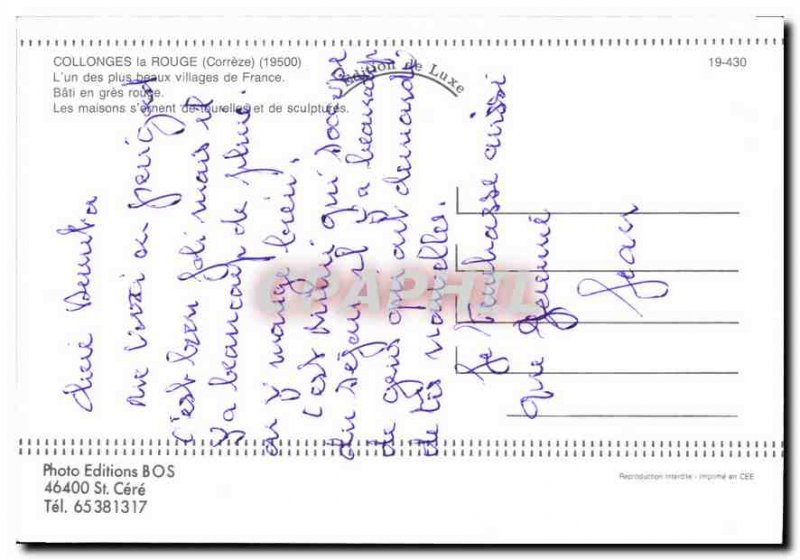 COLLONGES la ROUGE (Corrèze) (19500)
L'un des plus beaux villages de France.
Bâti en grès rouge.
Les maisons s'ornent de tourelles et de sculptures.
Edition de Luxe
19-430
me voici au périgord
c'est bien joli mais il
y a beaucoup de pluie.
on y mange bien.
c'est qui s'occupe
du séjour il y a beaucoup
de gens qui ont demandé
de tes nouvelles.
Je t'embrasse ainsi
que
Jean
CPAPHIL
Photo Editions BOS
46400 St. Céré
Tél. 65381317
Reproduction interdite - Imprimé en CEE